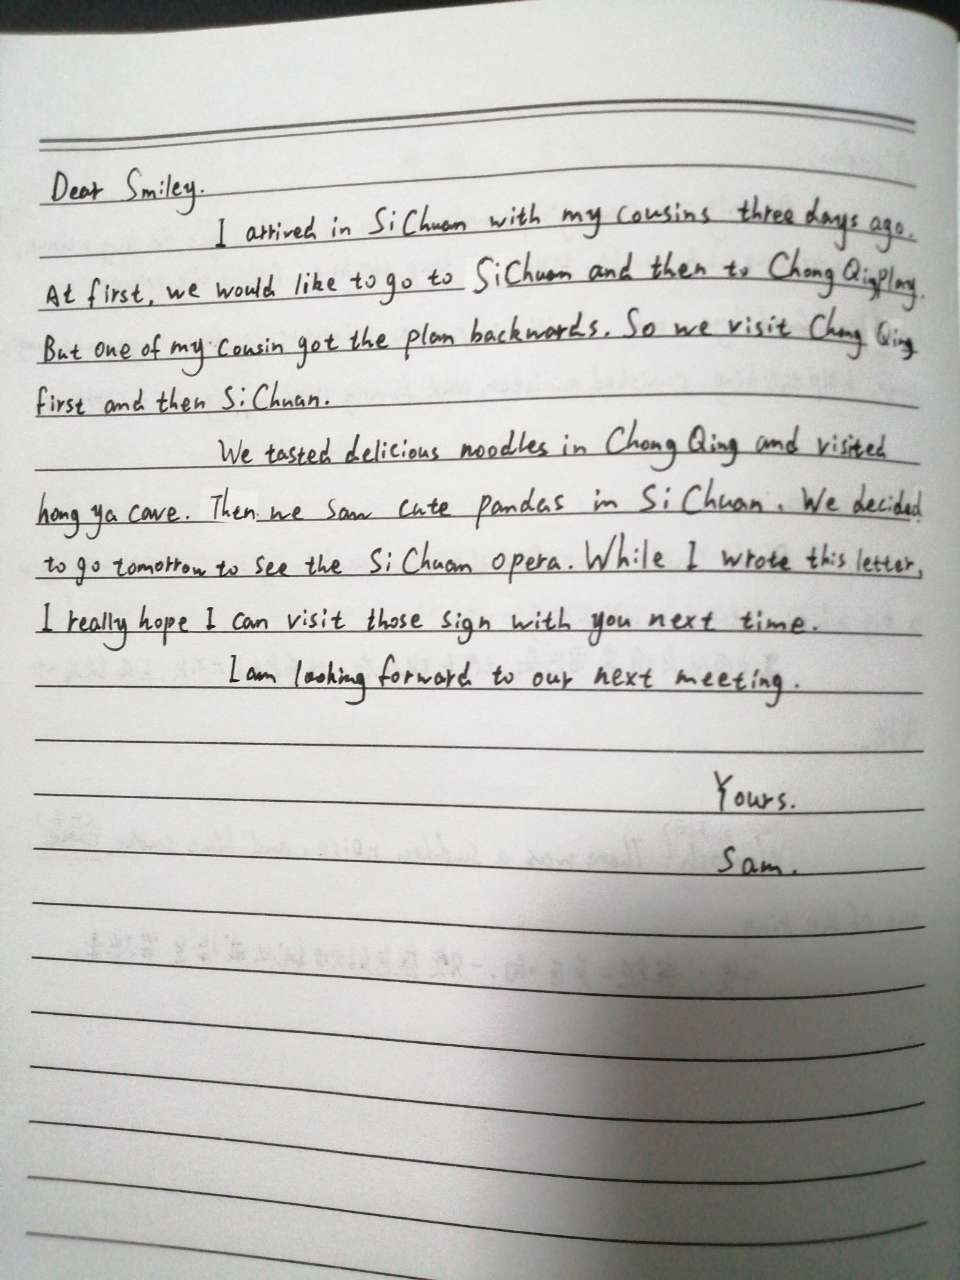 Dear Smiley.
I arrived in SiChuan with my cousins three days ago.
At first, we would like to go to SiChuan and then to Chong Qing play.
But one of my cousin got the plan backwards. So we visit Chong Qing
first and then SiChuan.
We tasted delicious noodles in Chong Qing and visited
hong ya cave. Then we saw cute pandas in SiChuan. We decided
to go tomorrow to see the SiChuan opera. While I wrote this letter,
I really hope I can visit those sign with you next time.
I am looking forward to our next meeting.
Yours.
Sam.